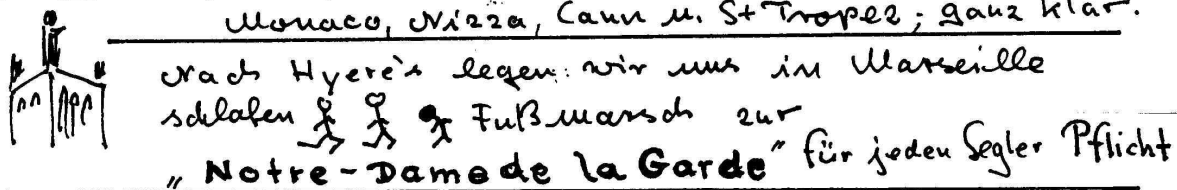 Monaco, Nizza, Cann u. St Tropez; ganz klar.
Nach Hyere's legen wir uns in Marseille
schlafen Fußmarsch zur
"Notre-Dame de la Garde" für jeden Segler Pflicht